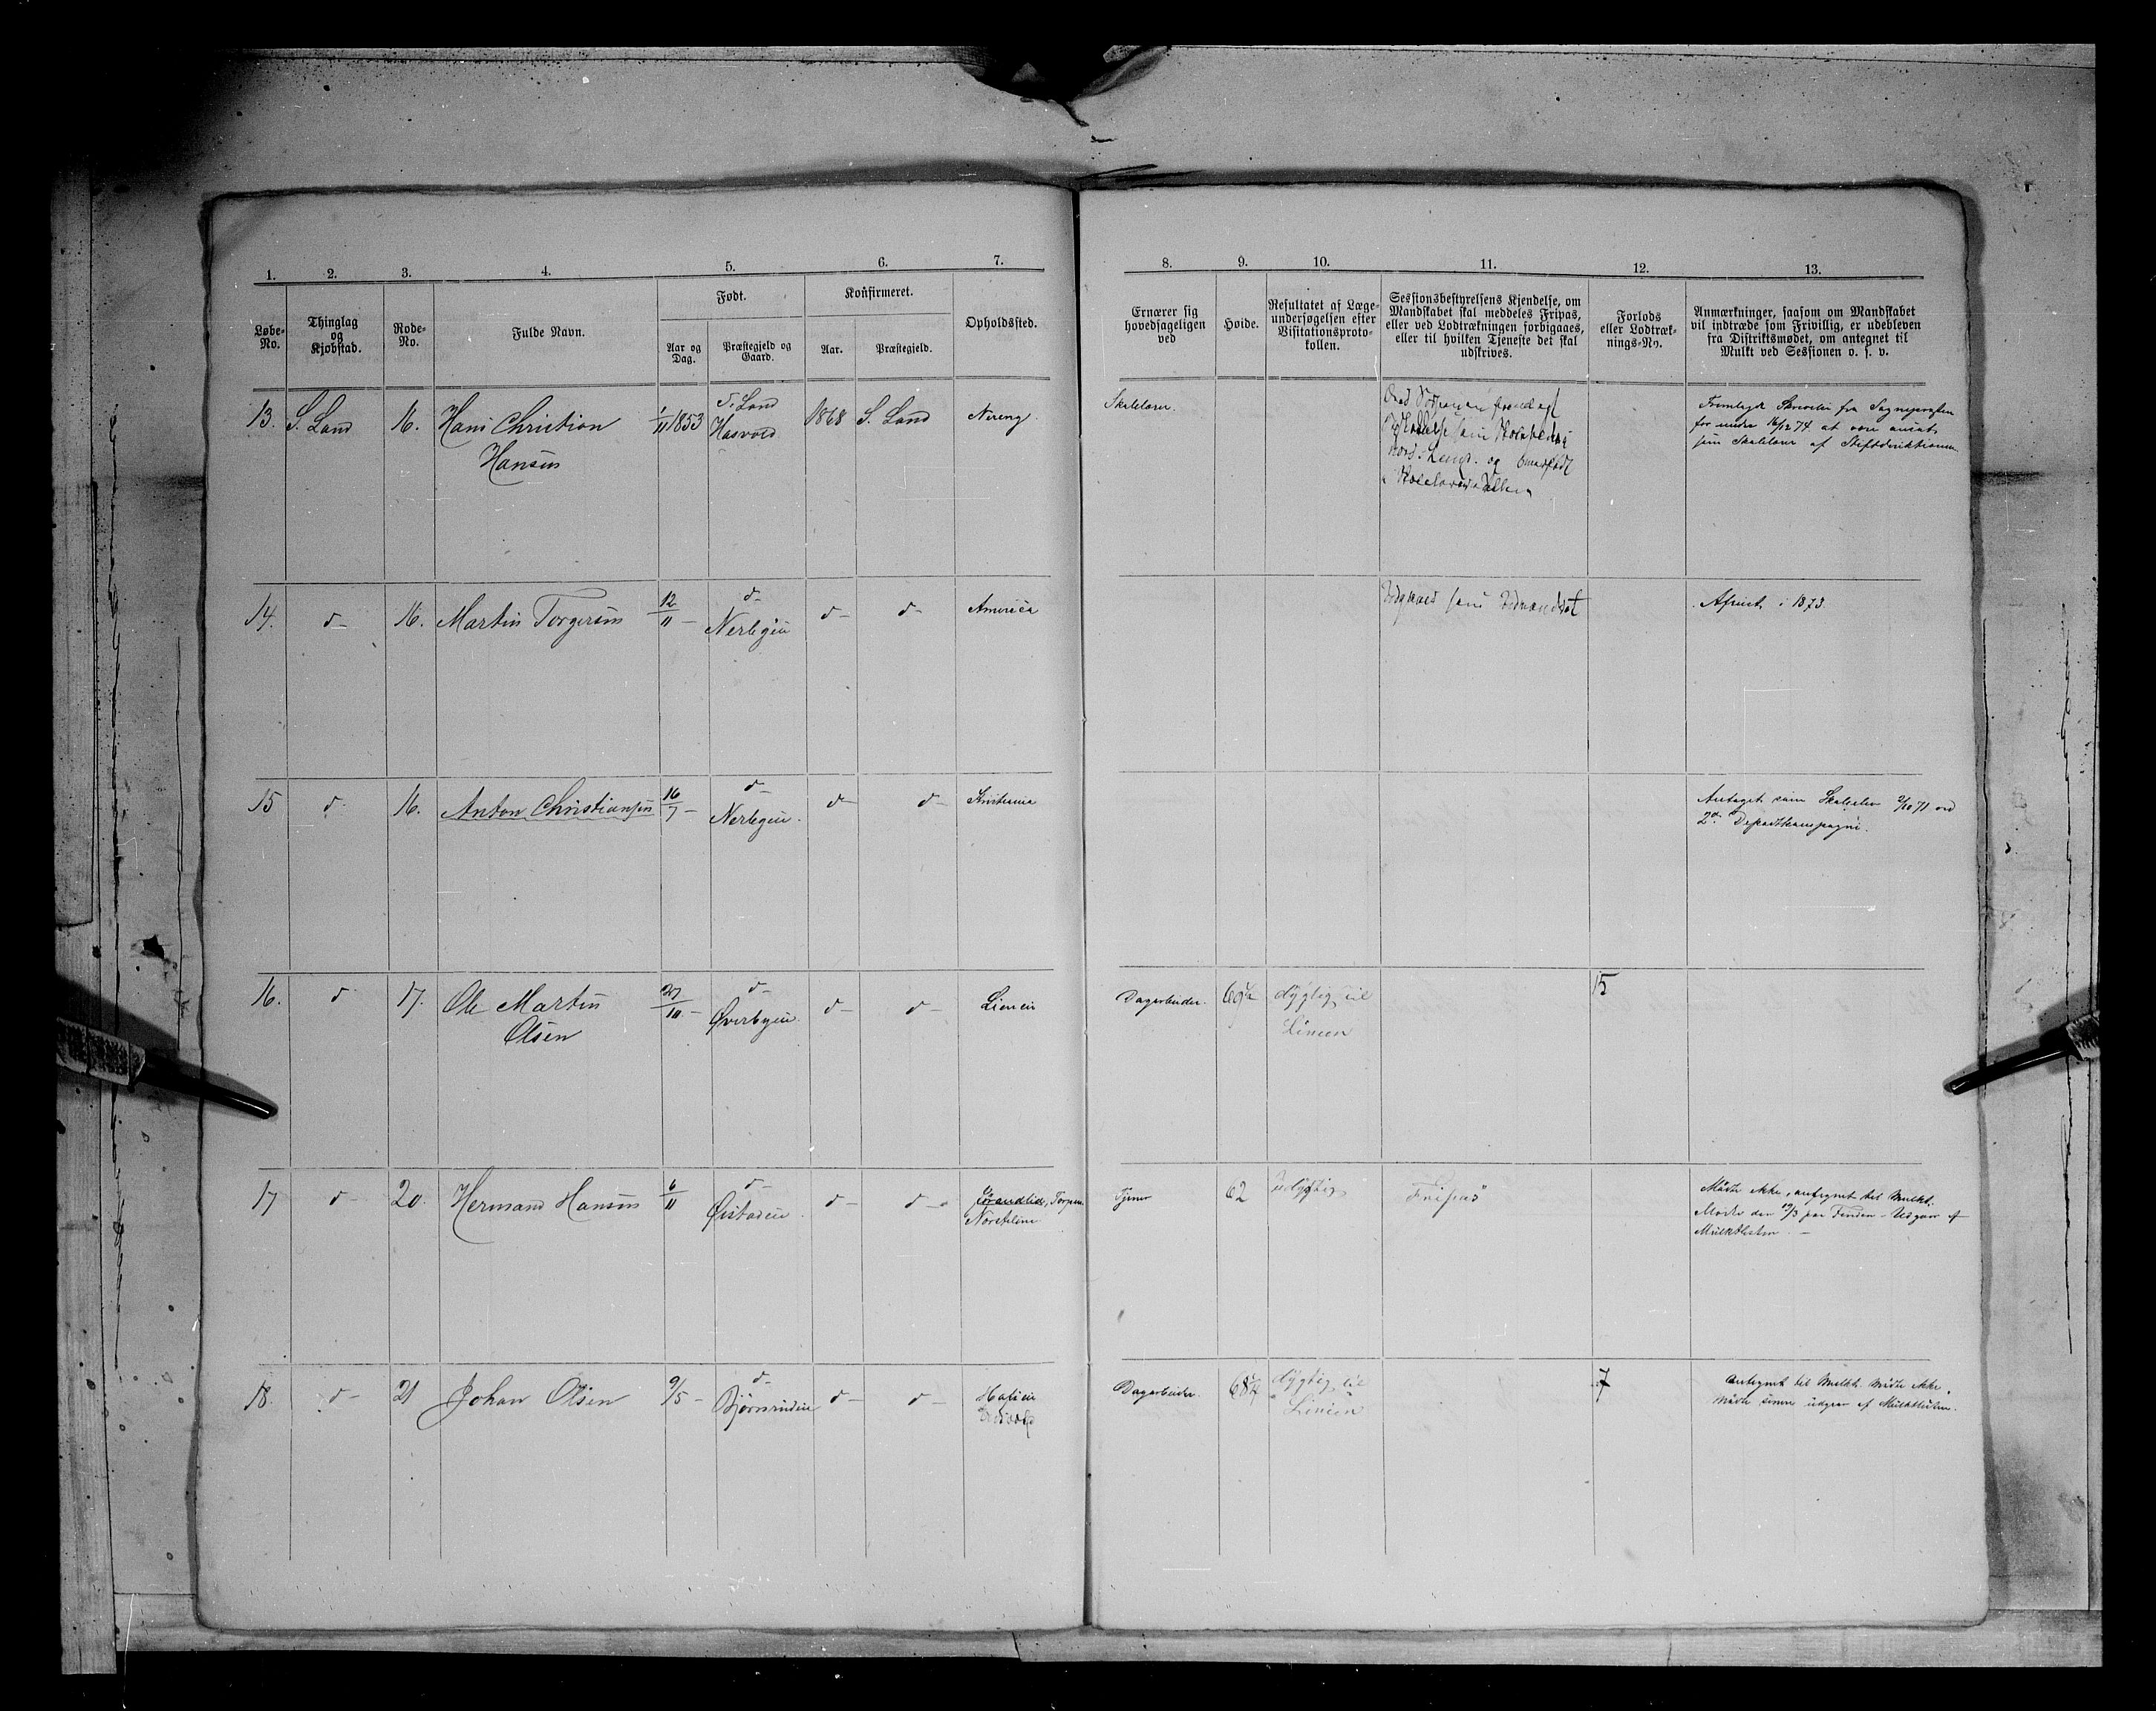 1. 2. 3. 4. 5. 6. 7.
Løbe-No. Thinglag og Kjøbstad. Rode-No. Fulde Navn. Født. Konfirmeret. Opholdssted.
Aar og Dag. Præstegjeld og Gaard. Aar. Præstegjeld.
13. S. Land 16. Hans Christian 1/11 1853 S. Land 1868 S. Land Nereng.
Hansen Hasvold
14. d- 16. Martin Torgersen 12/11 - d- d- d- America
Nerbyen
15 d- 16. Anton Christiansen 16/7 - d- d- d- Kristiania
Nerbyen.
16. d- 17. Ole Martin 27/10 - d- d- d- Lieneie
Olsen Øverbyen.
17 d- 20. Hermand Hansen 6/11 d- d- d-
Øistadeie.
18. d- 21 Johan Olsen 9/5 - d- d- d-
Bjørnerudeie
8. 9. 10. 11. 12. 13.
Ernærer sig hovedsageligen ved
Høide.
Resultatet af Læge-undersøgelsen efter Visitationsproto-kollen.
Sessionsbestyrelsens Kjendelse, om Mandskabet skal meddeles Fripas, eller ved Lodtrækningen forbigaaes, eller til hvilken Tjeneste det skal udskrives.
Forlods eller Lodtræk-nings-No.
Anmærkninger, saasom om Mandskabet vil indtræde som Frivillig, er udebleven fra Distriktsmødet, om antegnet til Mulkt ved Sessionen o. s. v.
Skolelærer. Fremlagt Skrivelse fra Sognepresten
16/12 74 at være ansat
som Skolelærer af Stiftsdirektionen
Udgaaes som Udvandret Afreist i 1873.
Antaget som Skoleelev 2/10 71 ved
2d. Depotkompagni.
Dagarbeider. 69½ dygtig til 15
Linien
Tjener 62 Udygtig Fripas Mødte ikke, antegnet til Mulkt.
Mulktlisten. -
Dagarbeider. 68½ dygtig til 7 Antegnet til Mulkt. Mødte ikke.
Linien Mødte senere udgaar af Mulktlisten.